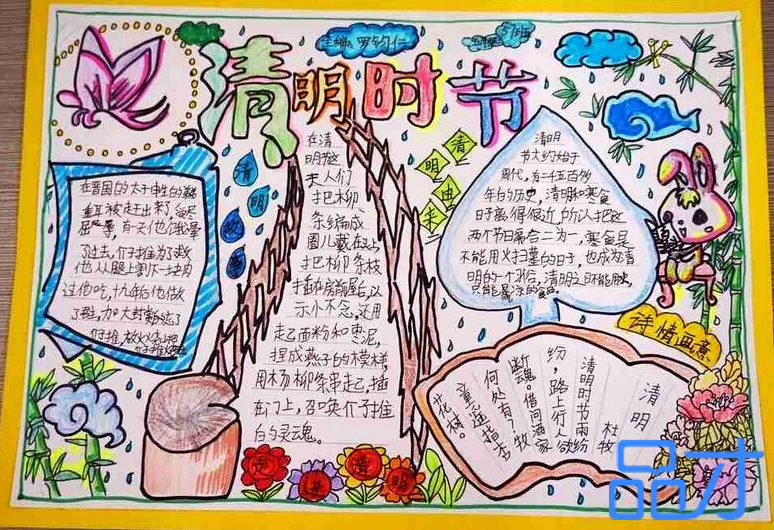 主编:罗钧仁
清明时节
清明故事
在晋国的太子申生的弟弟
重耳被赶出来了,受尽
屈辱,有一天他们饿晕
了过去,介子推为了救
他从腿上割下一块肉
过他吃,十九年后他做
在清
明这
天人们
把柳
条编成
圈儿戴在头上
把柳条枝
插在房前屋后,以
示怀念,还用
起面粉和枣泥,
捏成燕子的模样,
用杨柳条串起,插
在门上,召唤介子推
的灵魂。
清明由来
清明
节大约始于
周代,有二千五百多
年的历史,清明和寒食
日子离得很近,所以把这
两个节日合二为一,寒食是
不能用火扫墓的日子,也成为清
明的一个习俗,清明之日不能用火,
只能
诗情画意
清明
杜牧
清明时节雨纷
纷,路上行人欲
断魂。借问酒家
何处有?牧
童遥指杏
花村。
走进清明
品才